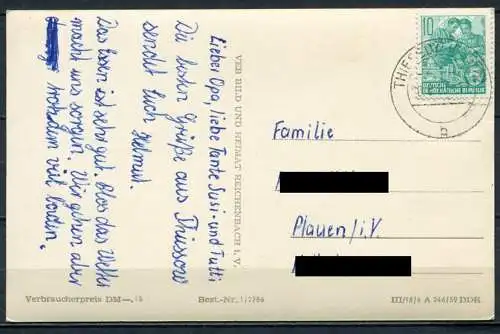 Lieber Opa, liebe Tante Susi und Tutti
Die besten Grüße aus Thiessow
sendet Euch Helmut.
Das Essen ist sehr gut. Blos das Wetter
macht uns sorgen. Wir gehen aber
trotzdem viel baden.
VEB BILD UND HEIMAT REICHENBACH I. V.
10
DEUTSCHE
DEMOKRATISCHE REPUBLIK
THIESSOW
a
Familie
Plauen/i.V.
Verbraucherpreis DM —,15
Best.-Nr. 1/2784
III/18/6 A 246/59 DDR